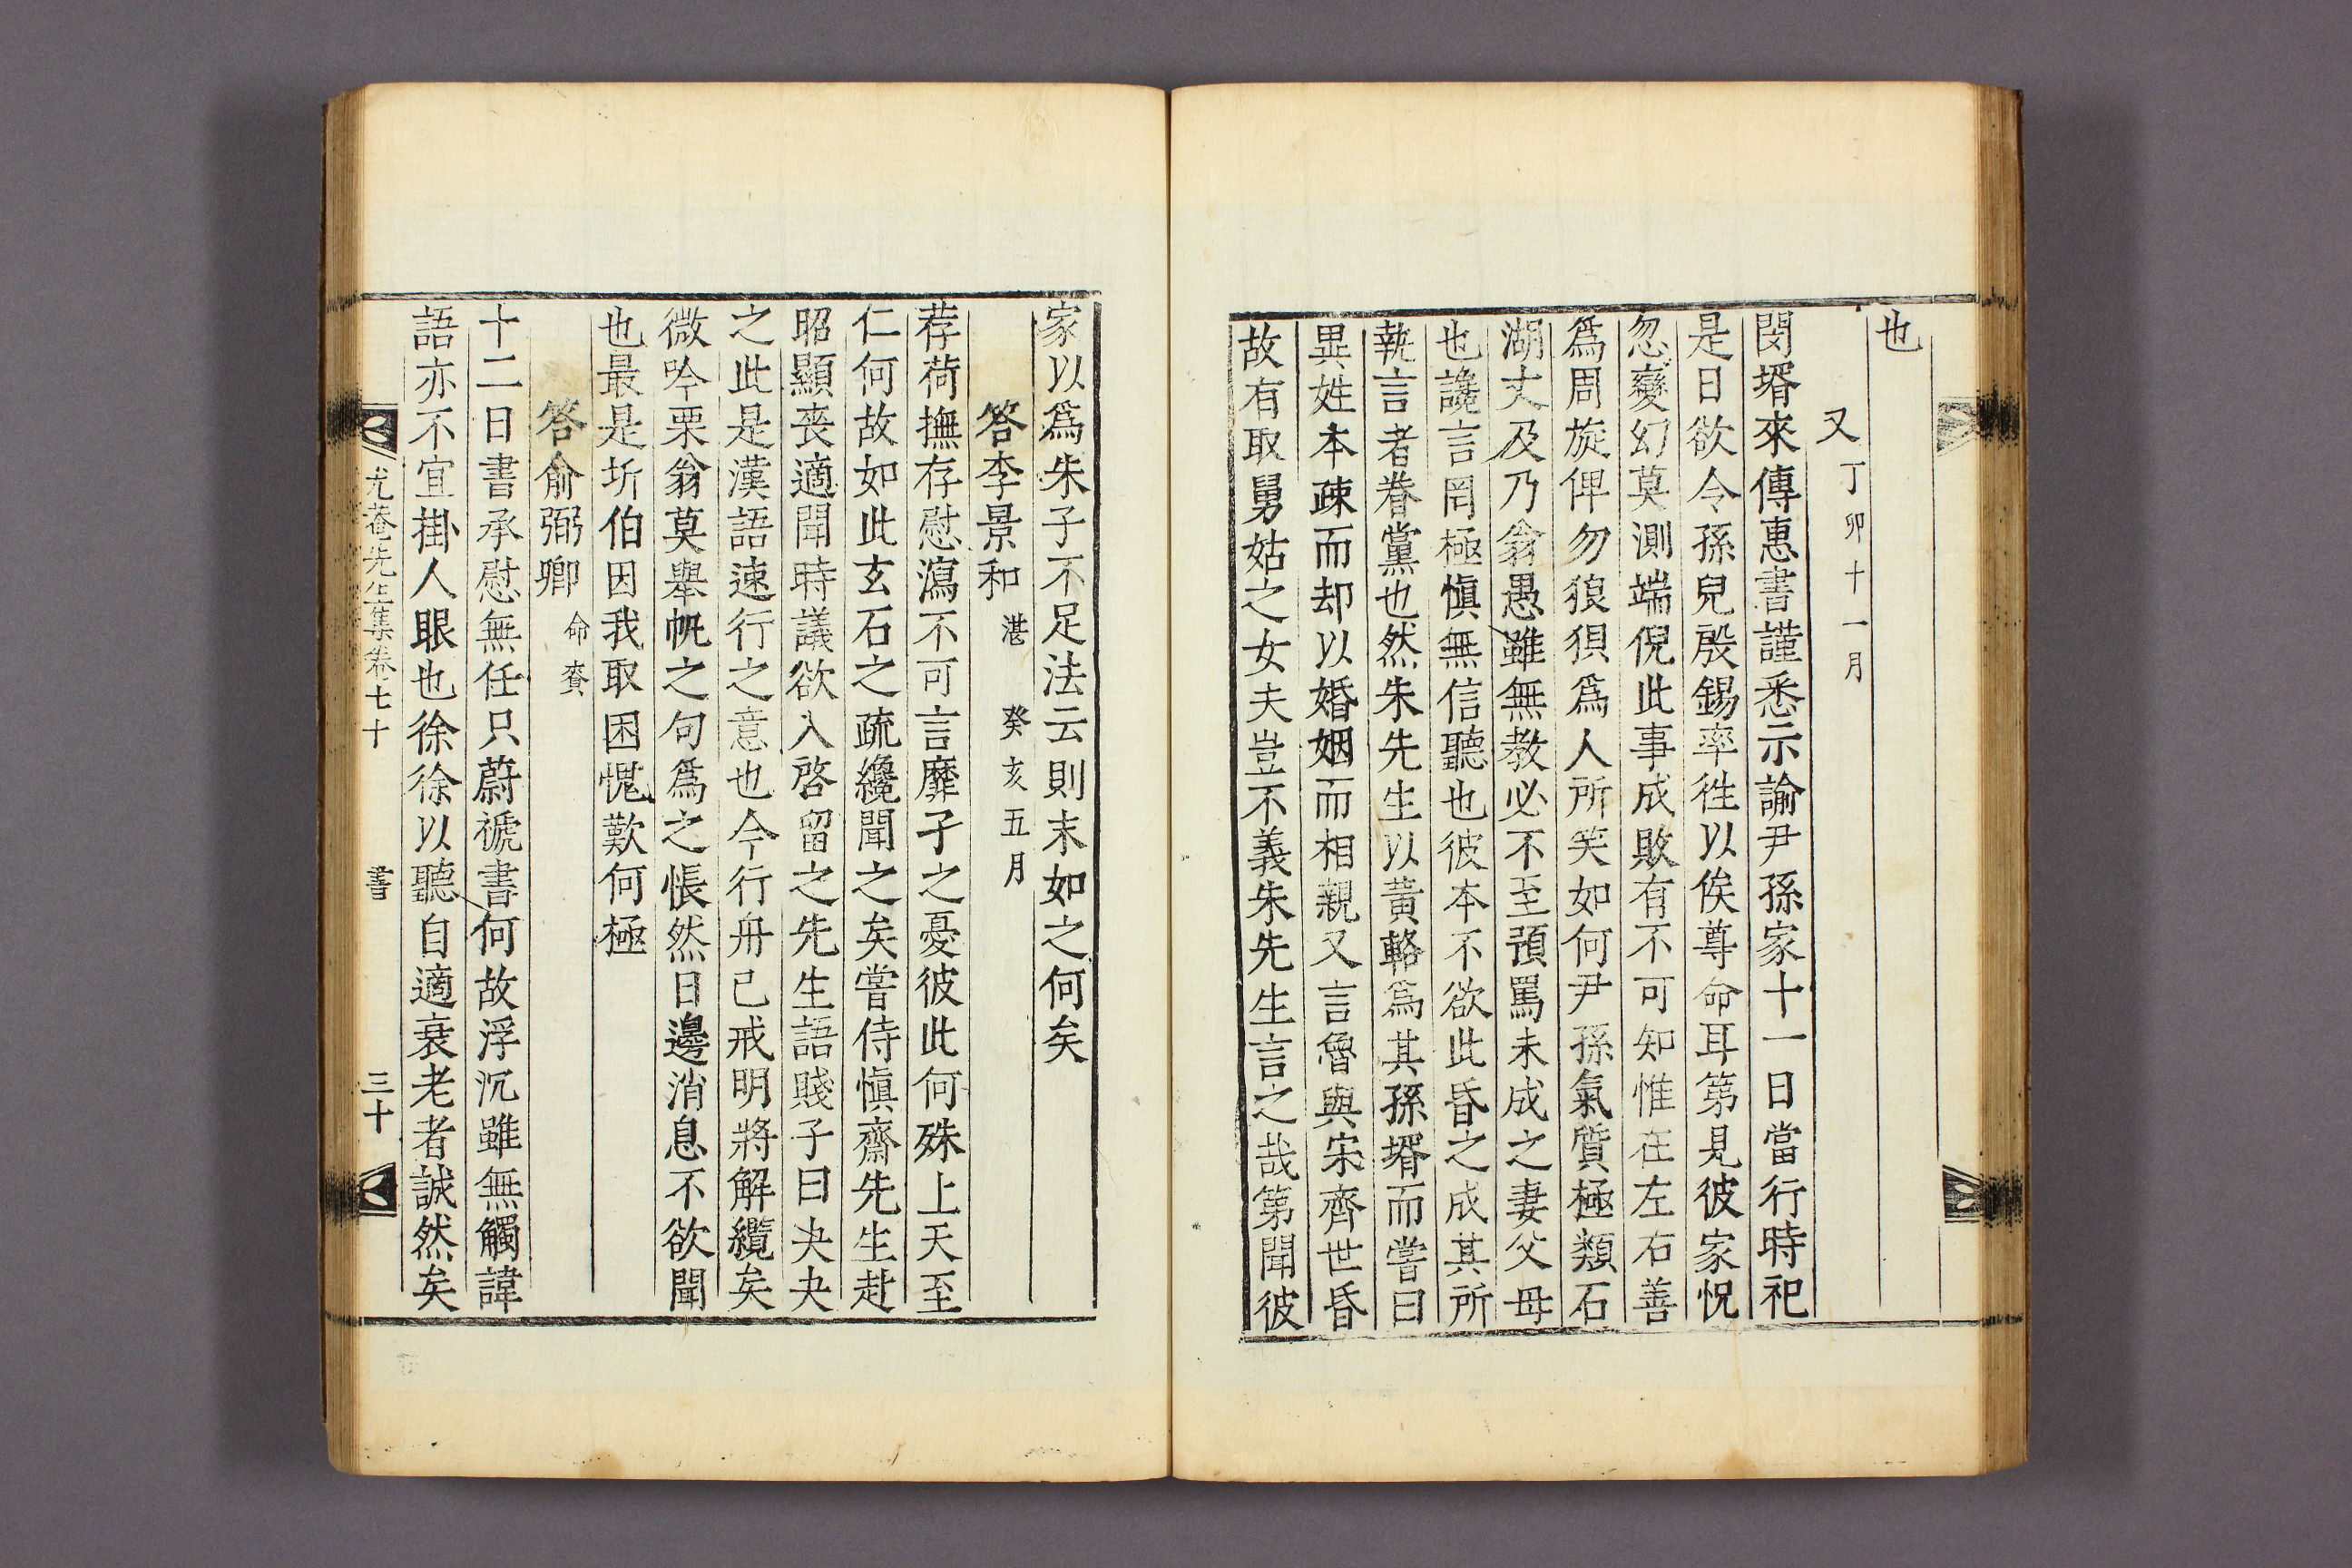 也
又 丁卯十一月
閔壻來傳惠書謹悉示諭尹孫家十一日當行時祀
是日欲令孫兒殷錫率徃以俟尊命耳第見彼家怳
忽變幻莫測端倪此事成敗有不可知惟在左右善
爲周旋俾勿狼狽爲人所笑如何尹孫氣質極類石
湖丈及乃翁愚雖無教必不至預罵未成之妻父母
也讒言罔極愼無信聽也彼本不欲此昏之成其所
執言者眷黨也然朱先生以黃輅爲其孫壻而嘗曰
異姓本疎而却以婚姻而相親又言魯與宋齊世昏
故有取舅姑之女夫豈不義朱先生言之哉第聞彼
家以爲朱子不足法云則末如之何矣
答李景和 湛 癸亥五月
荐荷撫存慰瀉不可言靡子之憂彼此何殊上天至
仁何故如此玄石之疏纔聞之矣嘗侍愼齋先生赴
昭顯喪適聞時議欲入啓留之先生語賤子曰夬夬
之此是漢語速行之意也今行舟已戒明將解纜矣
微吟栗翁莫舉帆之句爲之悵然日邊消息不欲聞
也最是圻伯因我取困愧歎何極
答俞弼卿 命賚
十二日書承慰無任只蔚褫書何故浮沉雖無觸諱
語亦不宜掛人眼也徐徐以聽自適衰老者誠然矣
尤菴先生集卷七十 書 三十